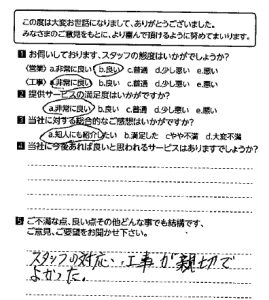 この度は大変お世話になりまして、ありがとうございました。
みなさまのご意見をもとに、より喜んで頂けるように努めてまいります。
1 お伺いしております、スタッフの態度はいかがですか?
(営業) a.非常に良い b.良い c.普通 d.少し悪い e.悪い
(工事) a.非常に良い b.良い c.普通 d.少し悪い e.悪い
2 提供サービスの満足度はいかがですか?
a.非常に良い b.良い c.普通 d.少し悪い e.悪い
3 当社に対する総合的なご感想はいかがですか?
a.知人にも紹介したい b.満足した c.やや不満 d.大変不満
4 当社に今後あれば良いと思われるサービスはありますでしょうか?
5 ご不満な点、良い点その他どんな事でも結構です、
ご意見、ご要望をお聞かせ下さい。
スタッフの対応、工事が親切で
よかった。